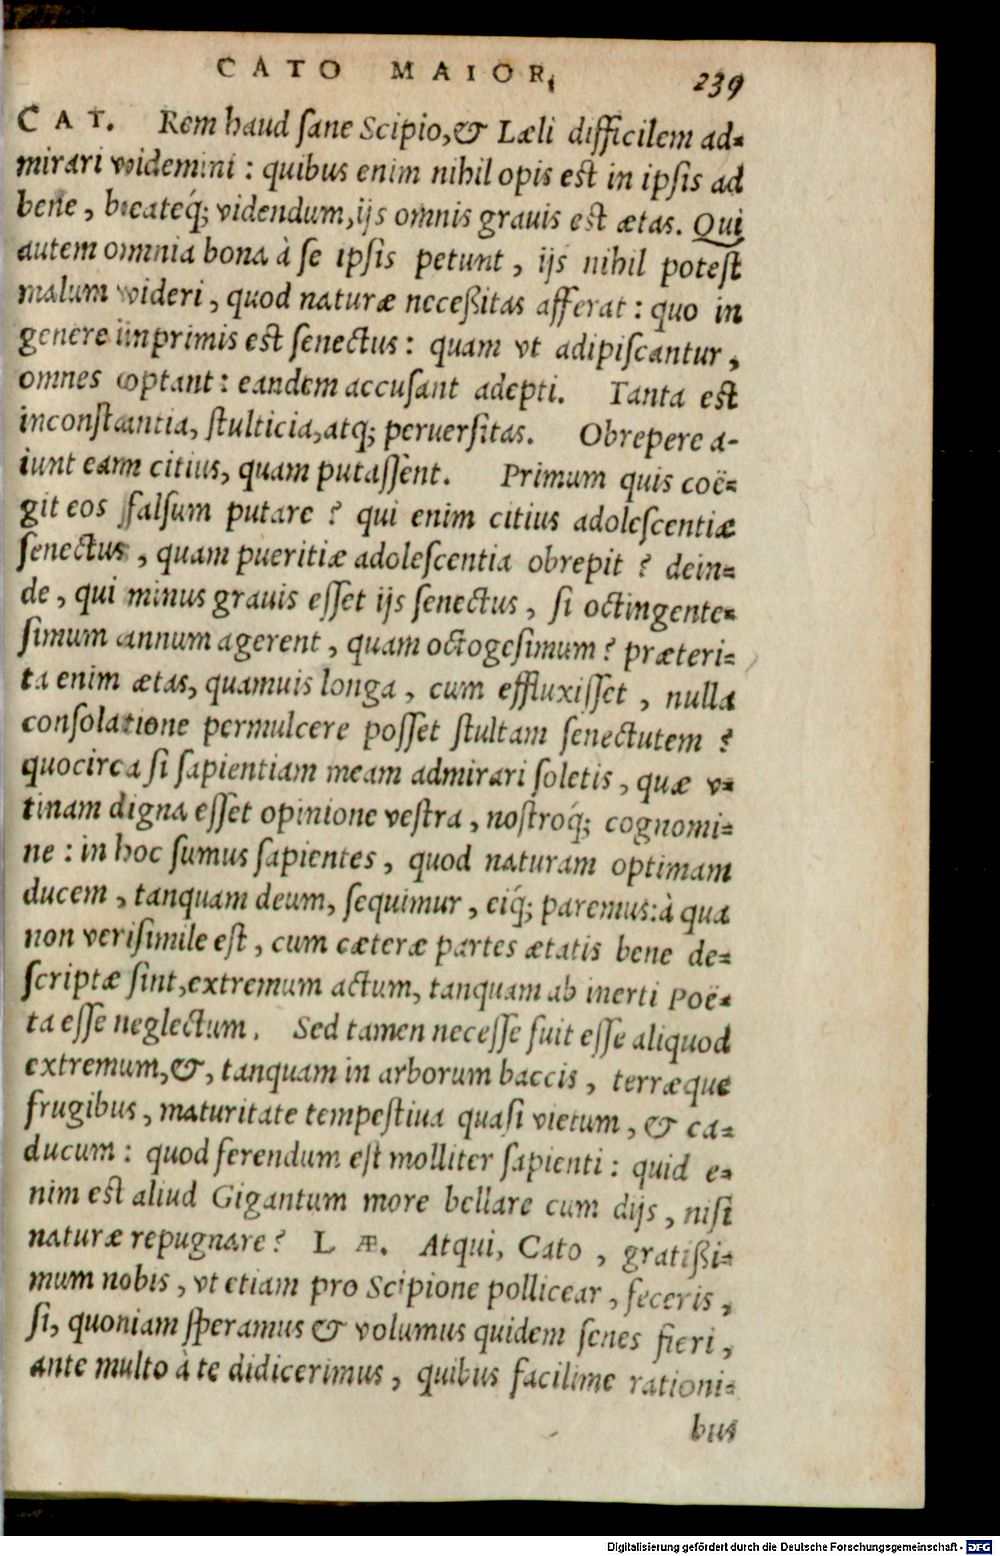 CATO MAIOR, 239
CAT. Rem haud sane Scipio, & Læli difficilem ad-
mirari videmini : quibus enim nihil opis est in ipsis ad
bene, beateq́; videndum, ijs omnis grauis est ætas. Qui
autem omnia bona à se ipsis petunt, ijs nihil potest
malum videri, quod naturæ neceßitas afferat : quo in
genere inprimis est senectus : quam vt adipiscantur,
omnes optant : eandem accusant adepti. Tanta est
inconstantia, stulticia, atq; peruersitas. Obrepere a-
iunt eam citius, quam putassent. Primum quis coë-
git eos falsum putare ? qui enim citius adolescentiæ
senectus, quam pueritiæ adolescentia obrepit ? dein-
de, qui minus grauis esset ijs senectus, si octingente-
simum annum agerent, quam octogesimum ? præteri-
ta enim ætas, quamuis longa, cum effluxisset, nulla
consolatione permulcere posset stultam senectutem ?
quocirca si sapientiam meam admirari soletis, quæ v-
tinam digna esset opinione vestra, nostroq́; cognomi-
ne : in hoc sumus sapientes, quod naturam optimam
ducem, tanquam deum, sequimur, eiq́; paremus : à qua
non verisimile est, cum cæteræ partes ætatis bene de-
scriptæ sint, extremum actum, tanquam ab inerti Poë-
ta esse neglectum. Sed tamen necesse fuit esse aliquod
extremum, &, tanquam in arborum baccis, terræque
frugibus, maturitate tempestiua quasi vietum, & ca-
ducum : quod ferendum est molliter sapienti : quid e-
nim est aliud Gigantum more bellare cum dijs, nisi
naturæ repugnare ? LÆ. Atqui, Cato, gratißi-
mum nobis, vt etiam pro Scipione pollicear, feceris,
si, quoniam speramus & volumus quidem senes fieri,
ante multo à te didicerimus, quibus facilime rationi-
bus
Digitalisierung gefördert durch die Deutsche Forschungsgemeinschaft - DFG